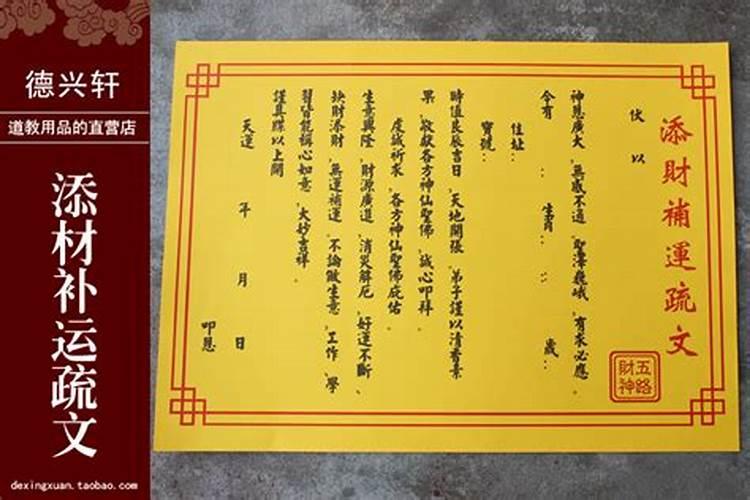 德兴轩
道教用品的直营店
添材补运疏文
dexingxuan.taobao.com
添財補運疏文
五路
財神
伏以
神恩廣大、無感不通、聖澤巍峨、有求必應。
今有 : 生肖 : : 歲、
住址:
寶號:
時值良辰吉日、天地開張、弟子謹以清香素
果、敬獻各方神仙聖佛、誠心叩拜。
虔誠祈求、各方神仙聖佛庇佑。
生意興隆、財源廣進、消災解厄、好運不斷、
缺財添財、無運補運、不論做生意、工作、學
習皆能稱心如意、大妙吉祥。
謹具牒以上聞
天運 年 月 日
叩恩